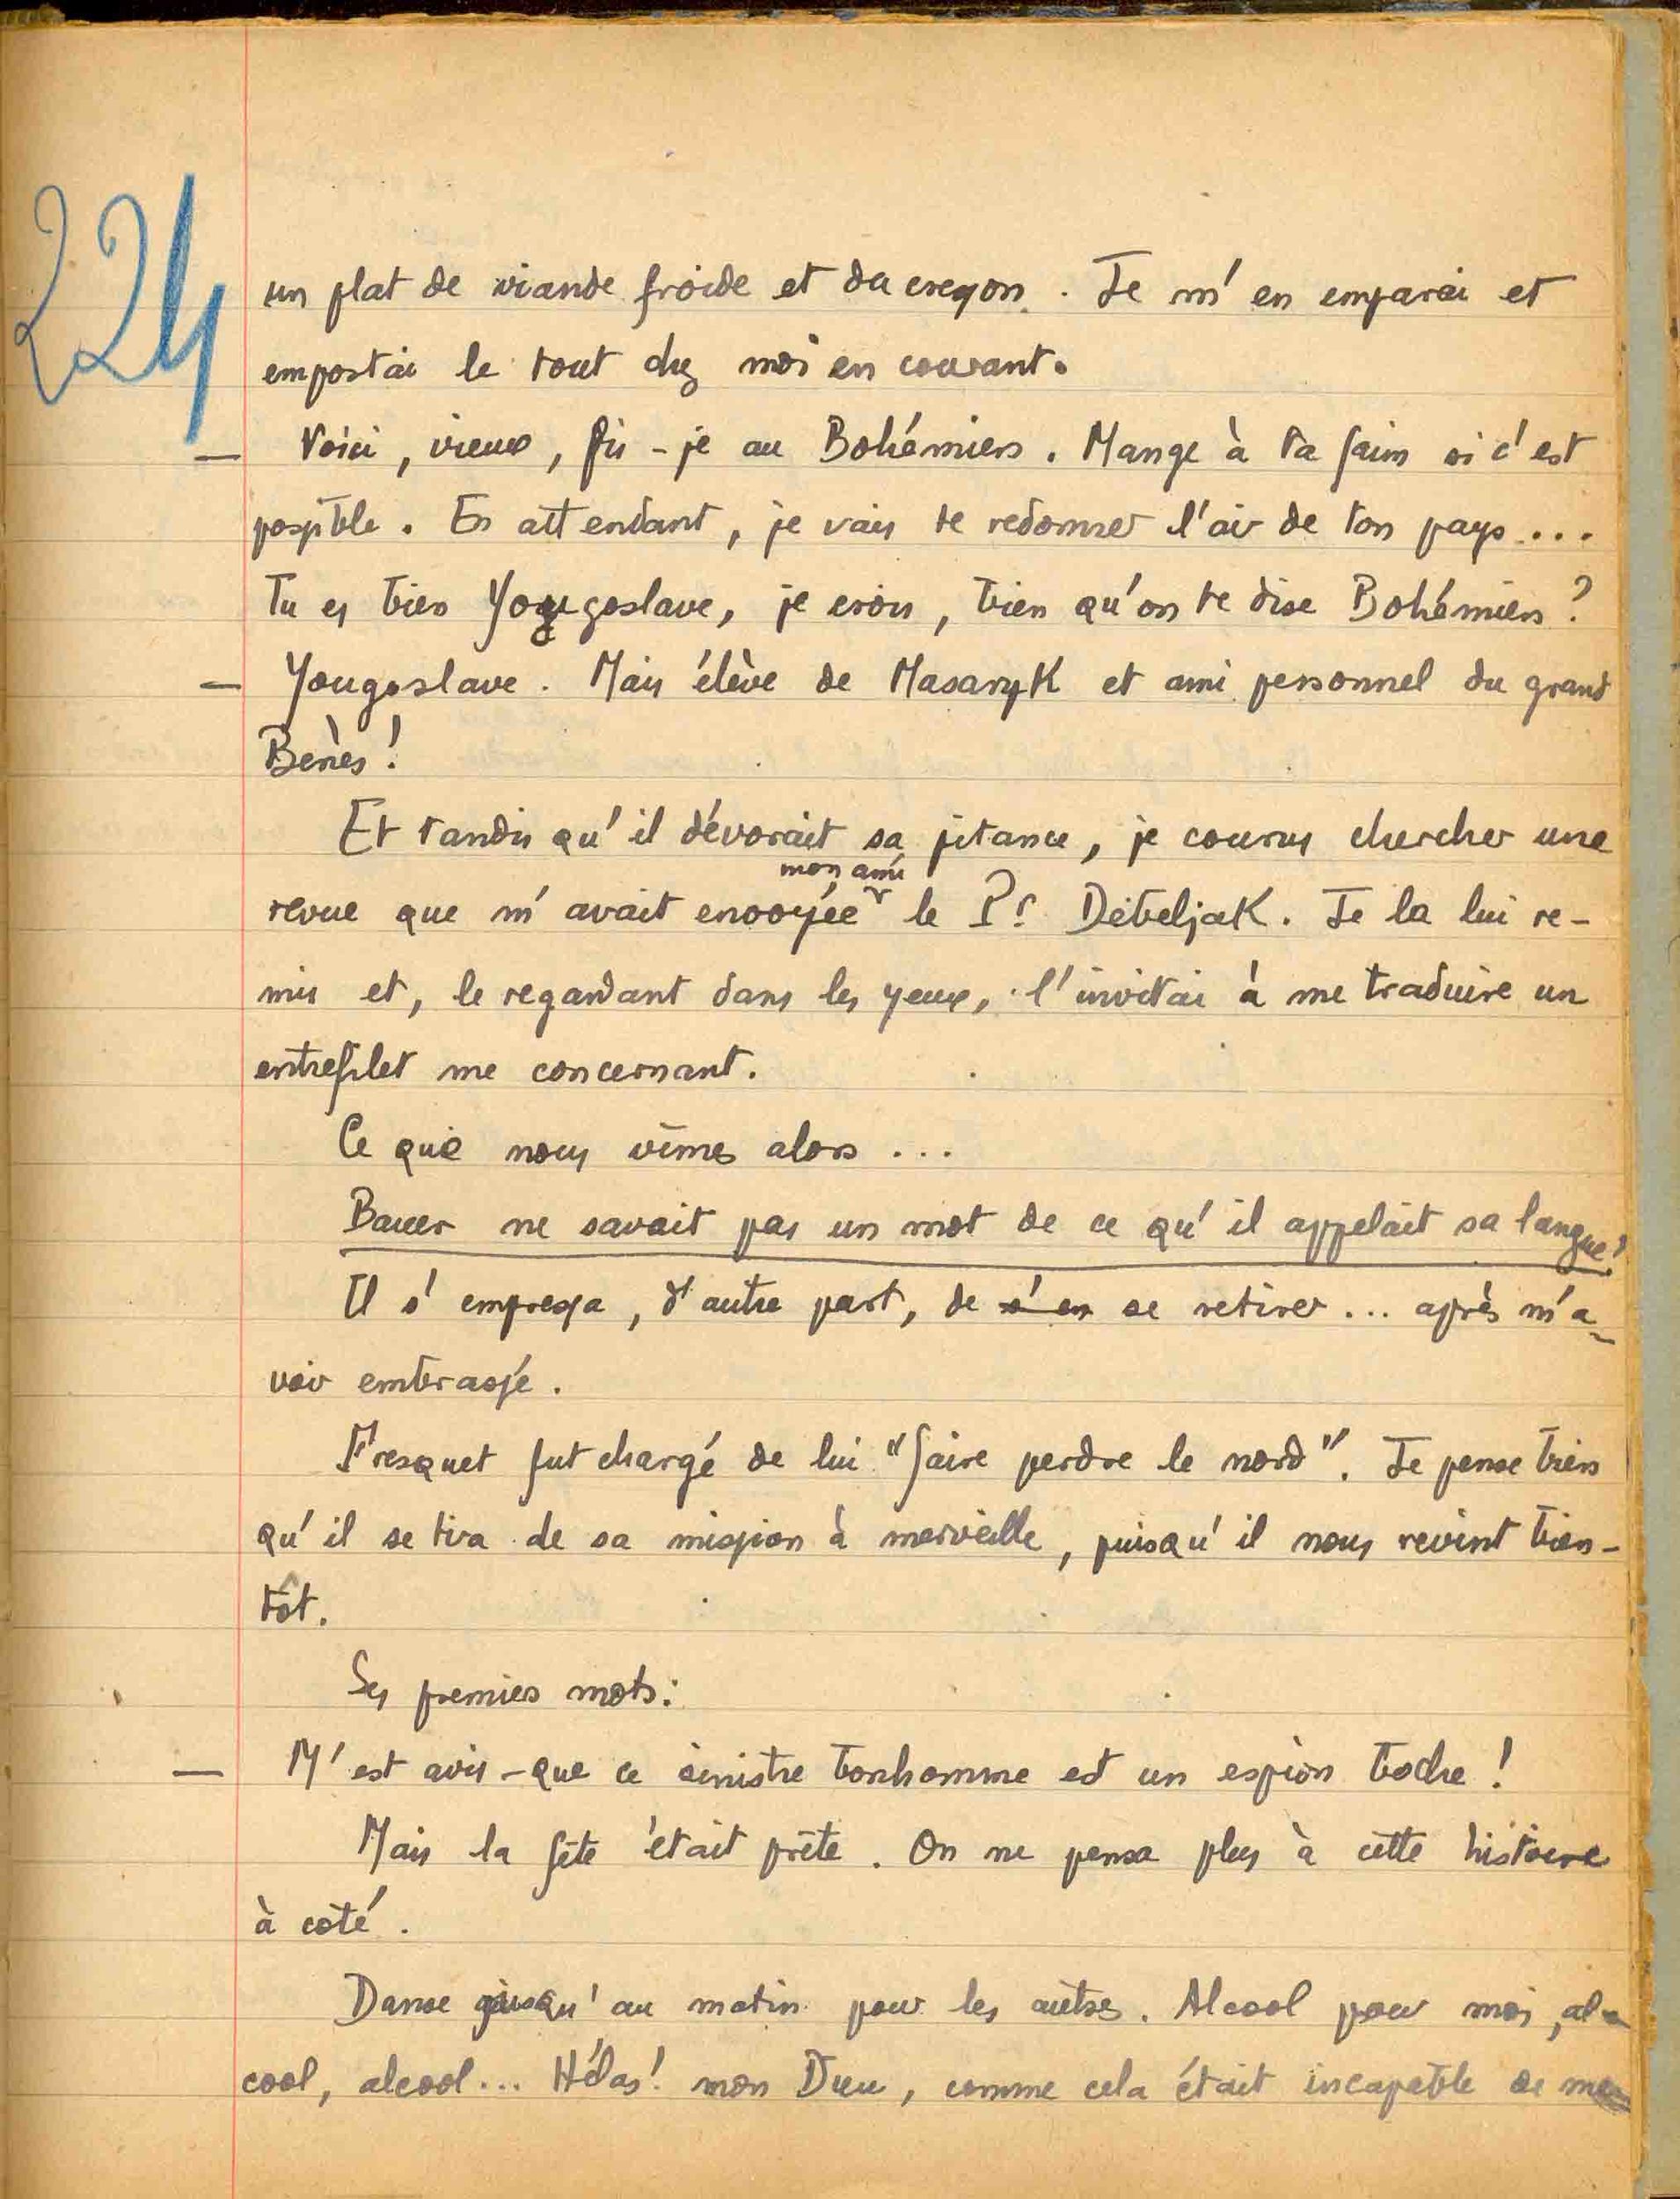 224
un plat de viande froide et du cresson. Je m'en emparai et
emportai le tout chez moi en courant.
— Voici, vieux, fis-je au Bohémien. Mange à ta faim si c'est
possible. En attendant, je vais te redonner l'air de ton pays...
Tu es bien Yougoslave, je crois, bien qu'on te dise Bohémien?
— Yougoslave. Mais élève de Masaryk et ami personnel du grand
Benès!
Et tandis qu'il dévorait sa pitance, je courus chercher une
mon ami
revue que m'avait envoyée le Pr Debeljak. Je la lui re-
mis et, le regardant dans les yeux, l'invitai à me traduire un
entrefilet me concernant.
Ce que nous vîmes alors...
Bauer ne savait pas un mot de ce qu'il appelait sa langue!
Il s'empressa, d'autre part, de s'en se retirer... après m'a-
voir embrassé.
Fresquet fut chargé de lui "faire perdre le nord". Je pense bien
qu'il se tira de sa mission à merveille, puisqu'il nous revint bien-
tôt.
Ses premiers mots:
— M'est avis - que ce sinistre bonhomme est un espion boche!
Mais la fête était prête. On ne pensa plus à cette histoire
à côté.
Danse jusqu'au matin pour les autres. Alcool pour moi, al-
cool, alcool... Hélas! mon Dieu, comme cela était incapable de me